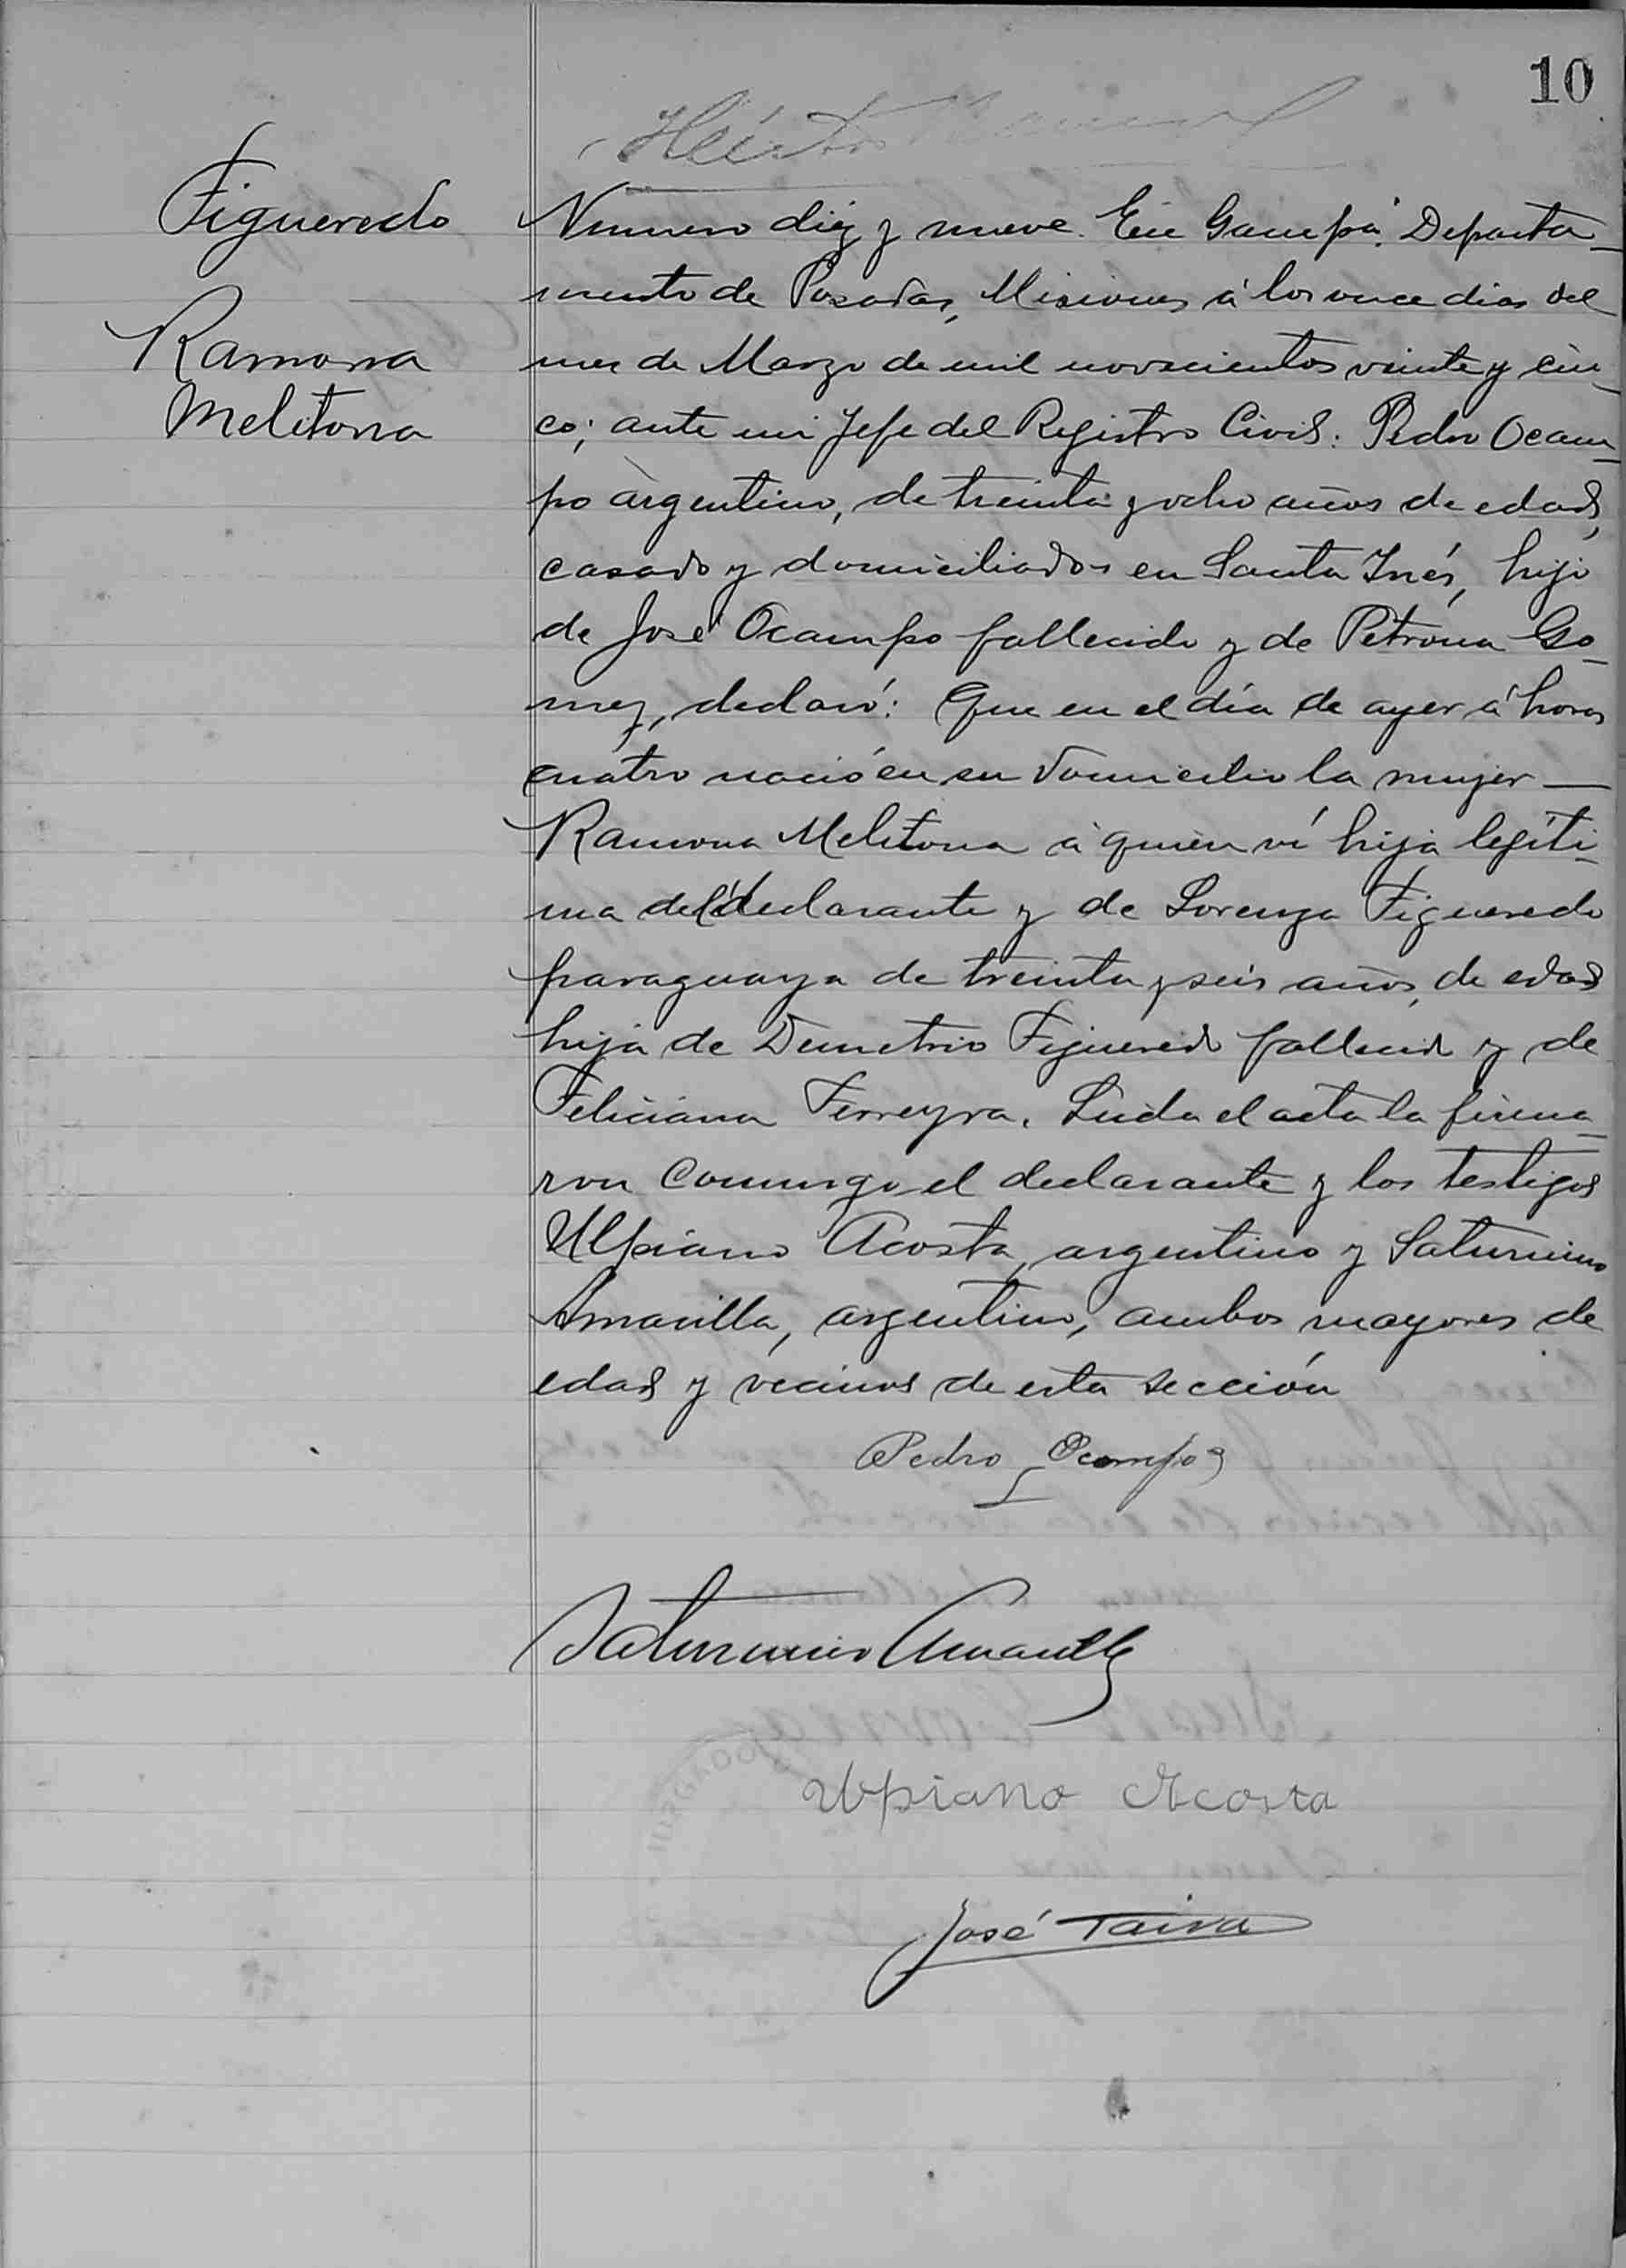 10
Figueredo
Ramona
Melitona
Numero diez y nueve. En Garupá, Departa-
mento de Posadas, Misiones á los once dias del
mes de Marzo de mil novecientos veinte y cin-
co; ante mi Jefe del Registro Civil: Pedro Ocam-
po argentino, de treinta y ocho años de edad,
casado y domiciliados en Santa Inés, hijo
de José Ocampo fallecido y de Petrona Go-
mez, declaró: Que en el día de ayer á horas
cuatro nació en su domicilio la mujer —
Ramona Melitona á quien ví hija legíti-
ma del declarante y de Lorenza Figueredo
paraguaya de treinta y seis años, de edad
hija de Demetrio Figueredo fallecido y de
Feliciana Ferreyra. Leida el acta la firma-
ron conmigo el declarante y los testigos
Ulpiano Acosta, argentino y Saturnino
Amarilla, argentino, ambos mayores de
edad y vecinos de esta sección
Pedro Ocampo
Saturnino Amarilla
Ulpiano Acosta
José